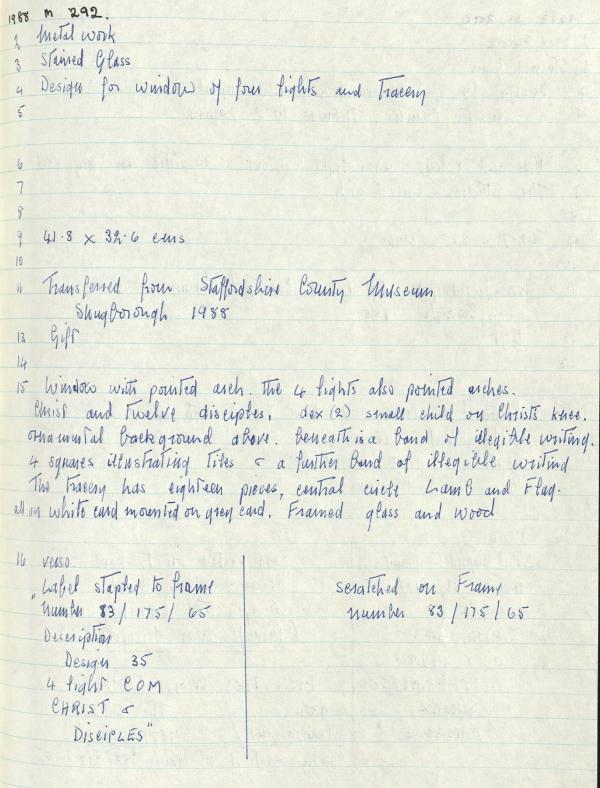 1988 M 292.
2 Metal work
3 Stained Glass
4 Design for window of four lights and Tracery
5
6
7
8
9 41.8 x 32.6 cms
10
11 Transferred from Staffordshire County Museum
Shugborough 1988
13 Gift
14
15 Window with pointed arch. The 4 lights also pointed arches.
Christ and Twelve disciples, dex (2) small child on Christs knee.
ornamental background above. beneath is a band of illegible writing.
4 squares illustrating titles & a further band of illegible writing
The Tracery has eighteen pieces, central circle Lamb and Flag.
all on white card mounted on grey card. Framed glass and wood
16 verso
"Label stapled to frame
number 83/175/65
Description
Design 35
4 light COM
CHRIST &
DISCIPLES"
scratched on Frame
number 83/175/65